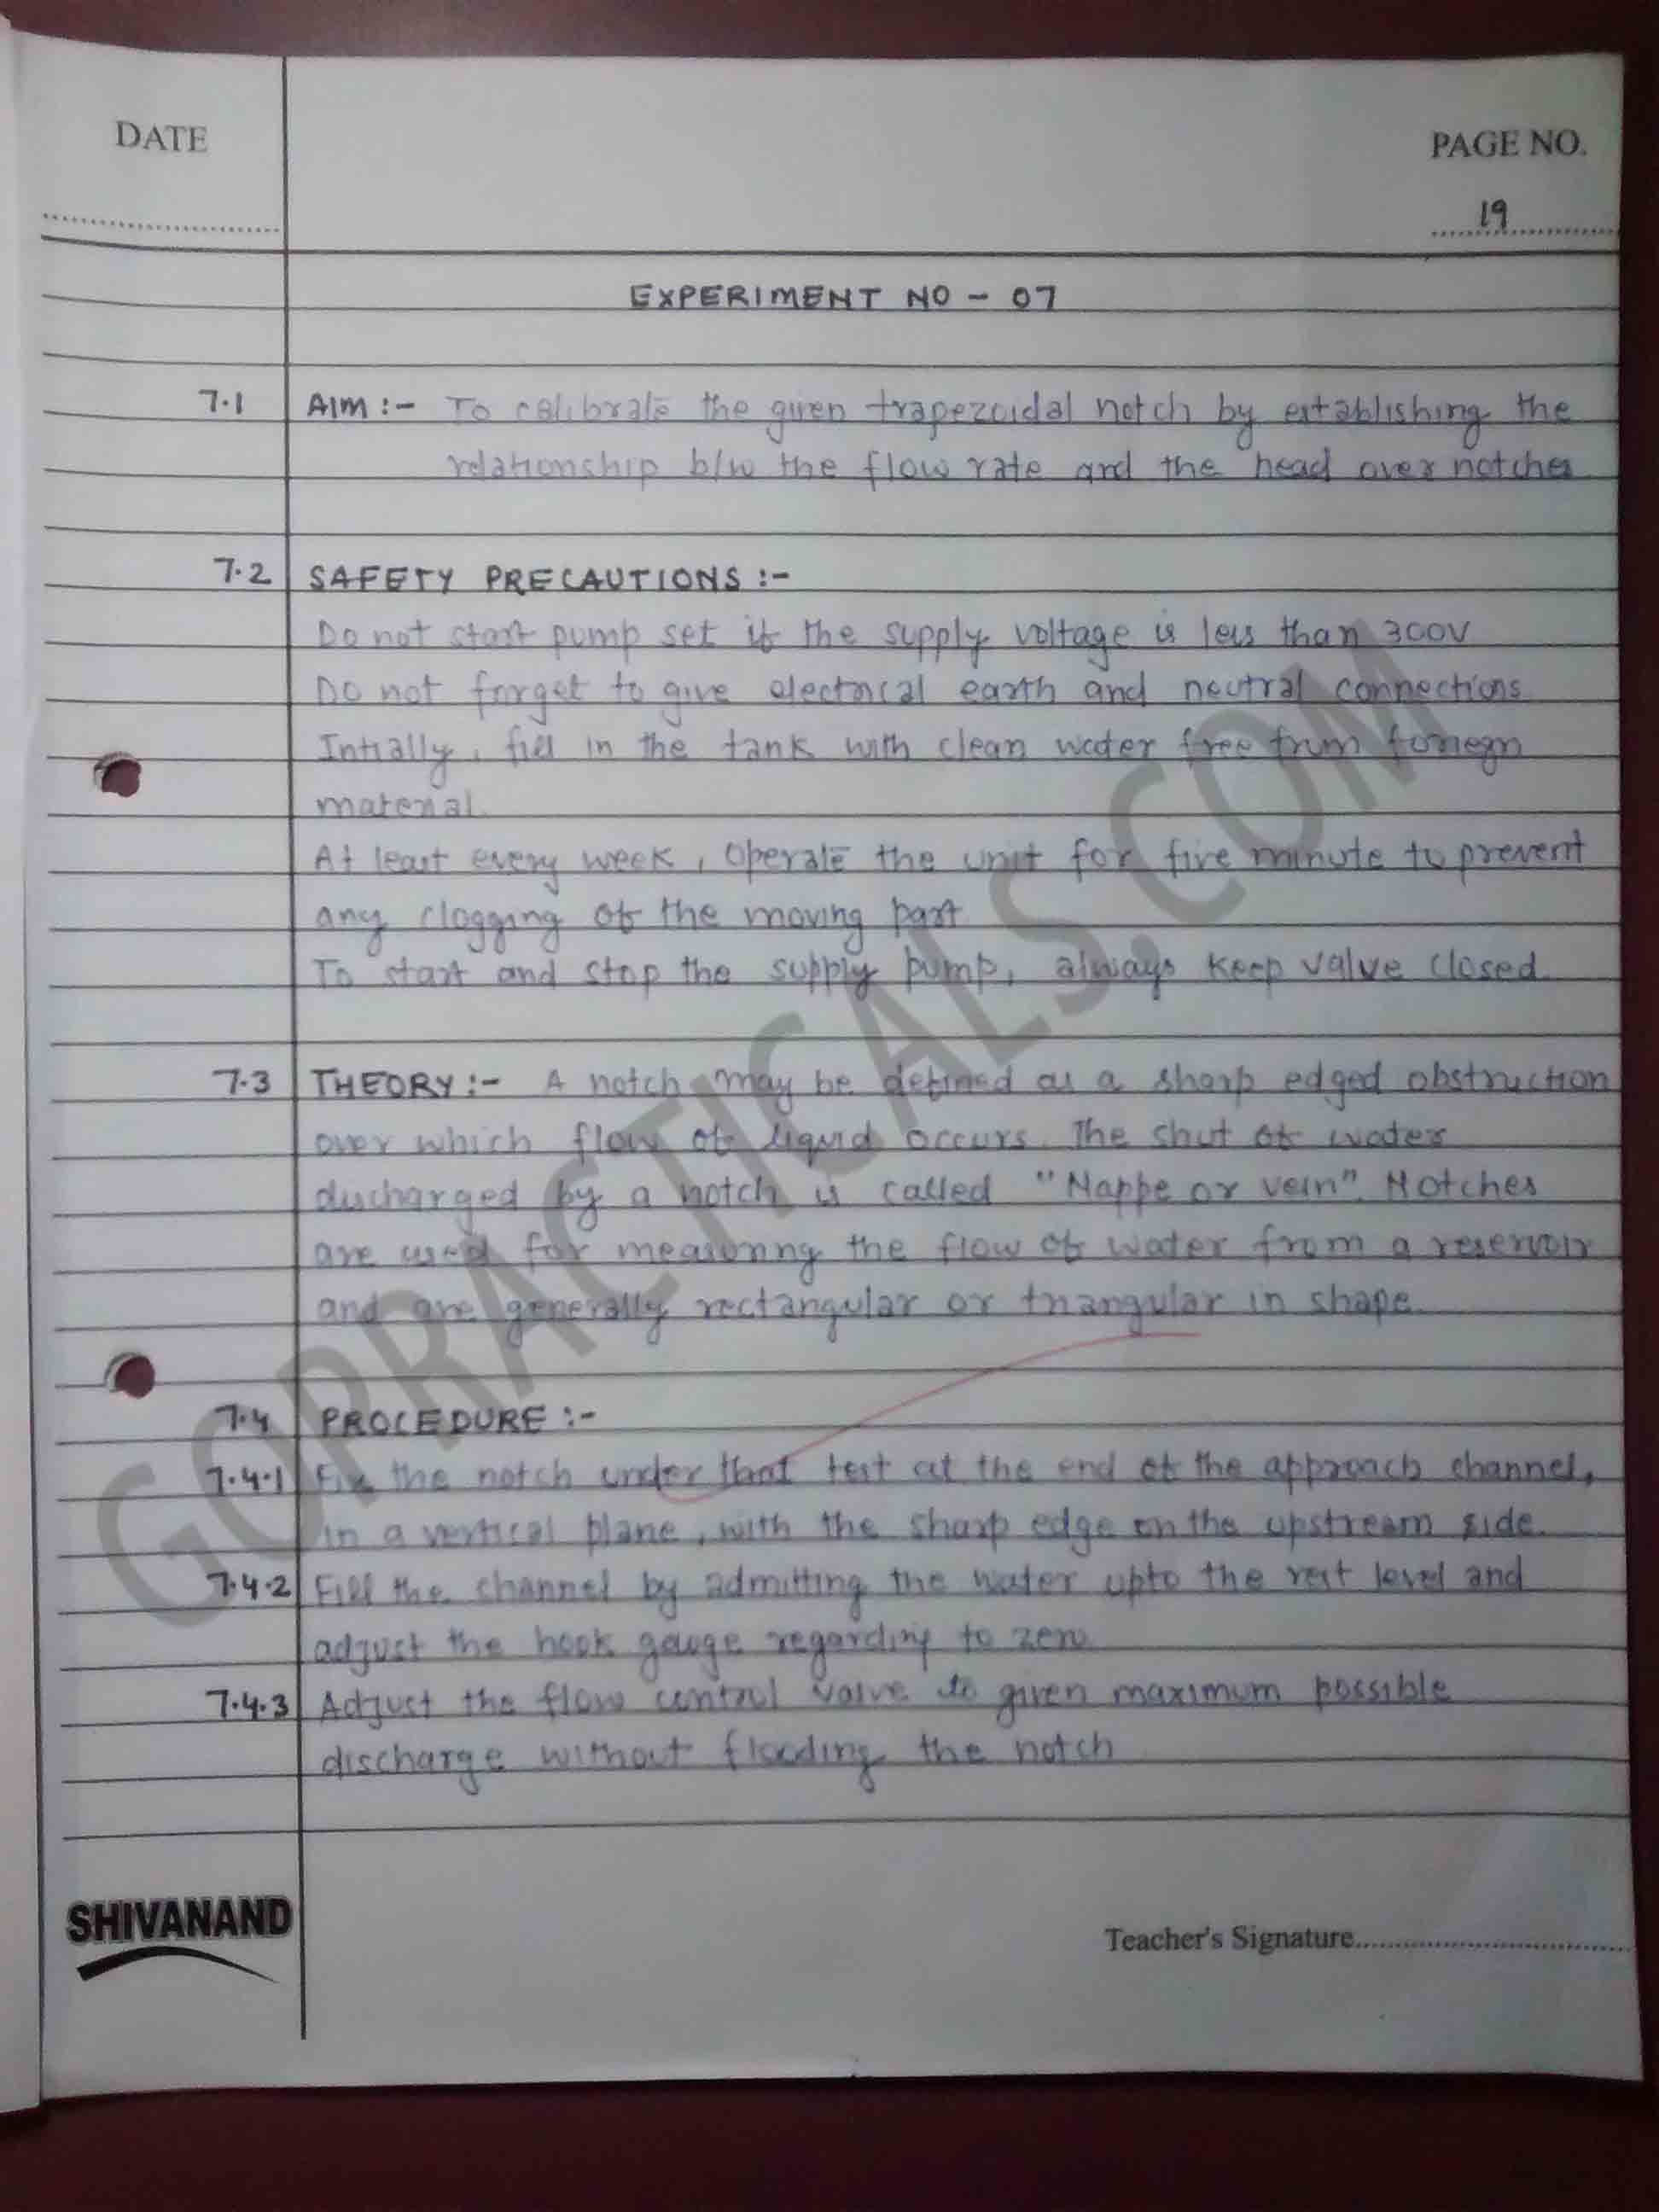 DATE
PAGE NO.
19
EXPERIMENT NO - 07
7.1 AIM :- To calibrate the given trapezoidal notch by establishing the
relationship b/w the flow rate and the head over notches
7.2 SAFETY PRECAUTIONS :-
Do not start pump set if the supply voltage is less than 300V
Do not forget to give electrical earth and neutral connections
Intially, fill in the tank with clean water free from foriegn
material.
At least every week, Operate the unit for five minute to prevent
any clogging of the moving part
To start and stop the supply pump, always keep valve closed.
7.3 THEORY :- A notch may be defined as a sharp edged obstruction
over which flow of liquid occurs. The shut of water
discharged by a notch is called "Nappe or vein". Notches
are used for measuring the flow of water from a reservoir
and are generally rectangular or triangular in shape.
7.4 PROCEDURE :-
7.4.1 Fix the notch under that test at the end of the approach channel,
in a vertical plane, with the sharp edge on the upstream side.
7.4.2 Fill the channel by admitting the water upto the rest level and
adjust the hook gauge regarding to zero
7.4.3 Adjust the flow control valve to given maximum possible
discharge without flooding the notch
SHIVANAND
Teacher's Signature
GOPRACTICALS.COM